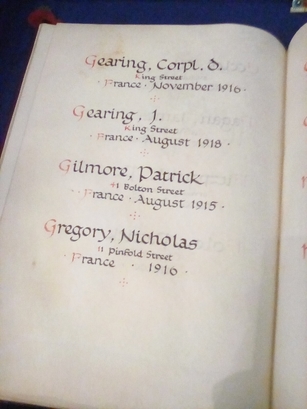 Gearing, Corpl. D.
King Street
France · November 1916 ·
Gearing, J.
King Street
· France · August 1918 ·
Gilmore, Patrick
41 Bolton Street
· France · August 1915 ·
Gregory, Nicholas
11 Pinfold Street
· France · 1916 ·